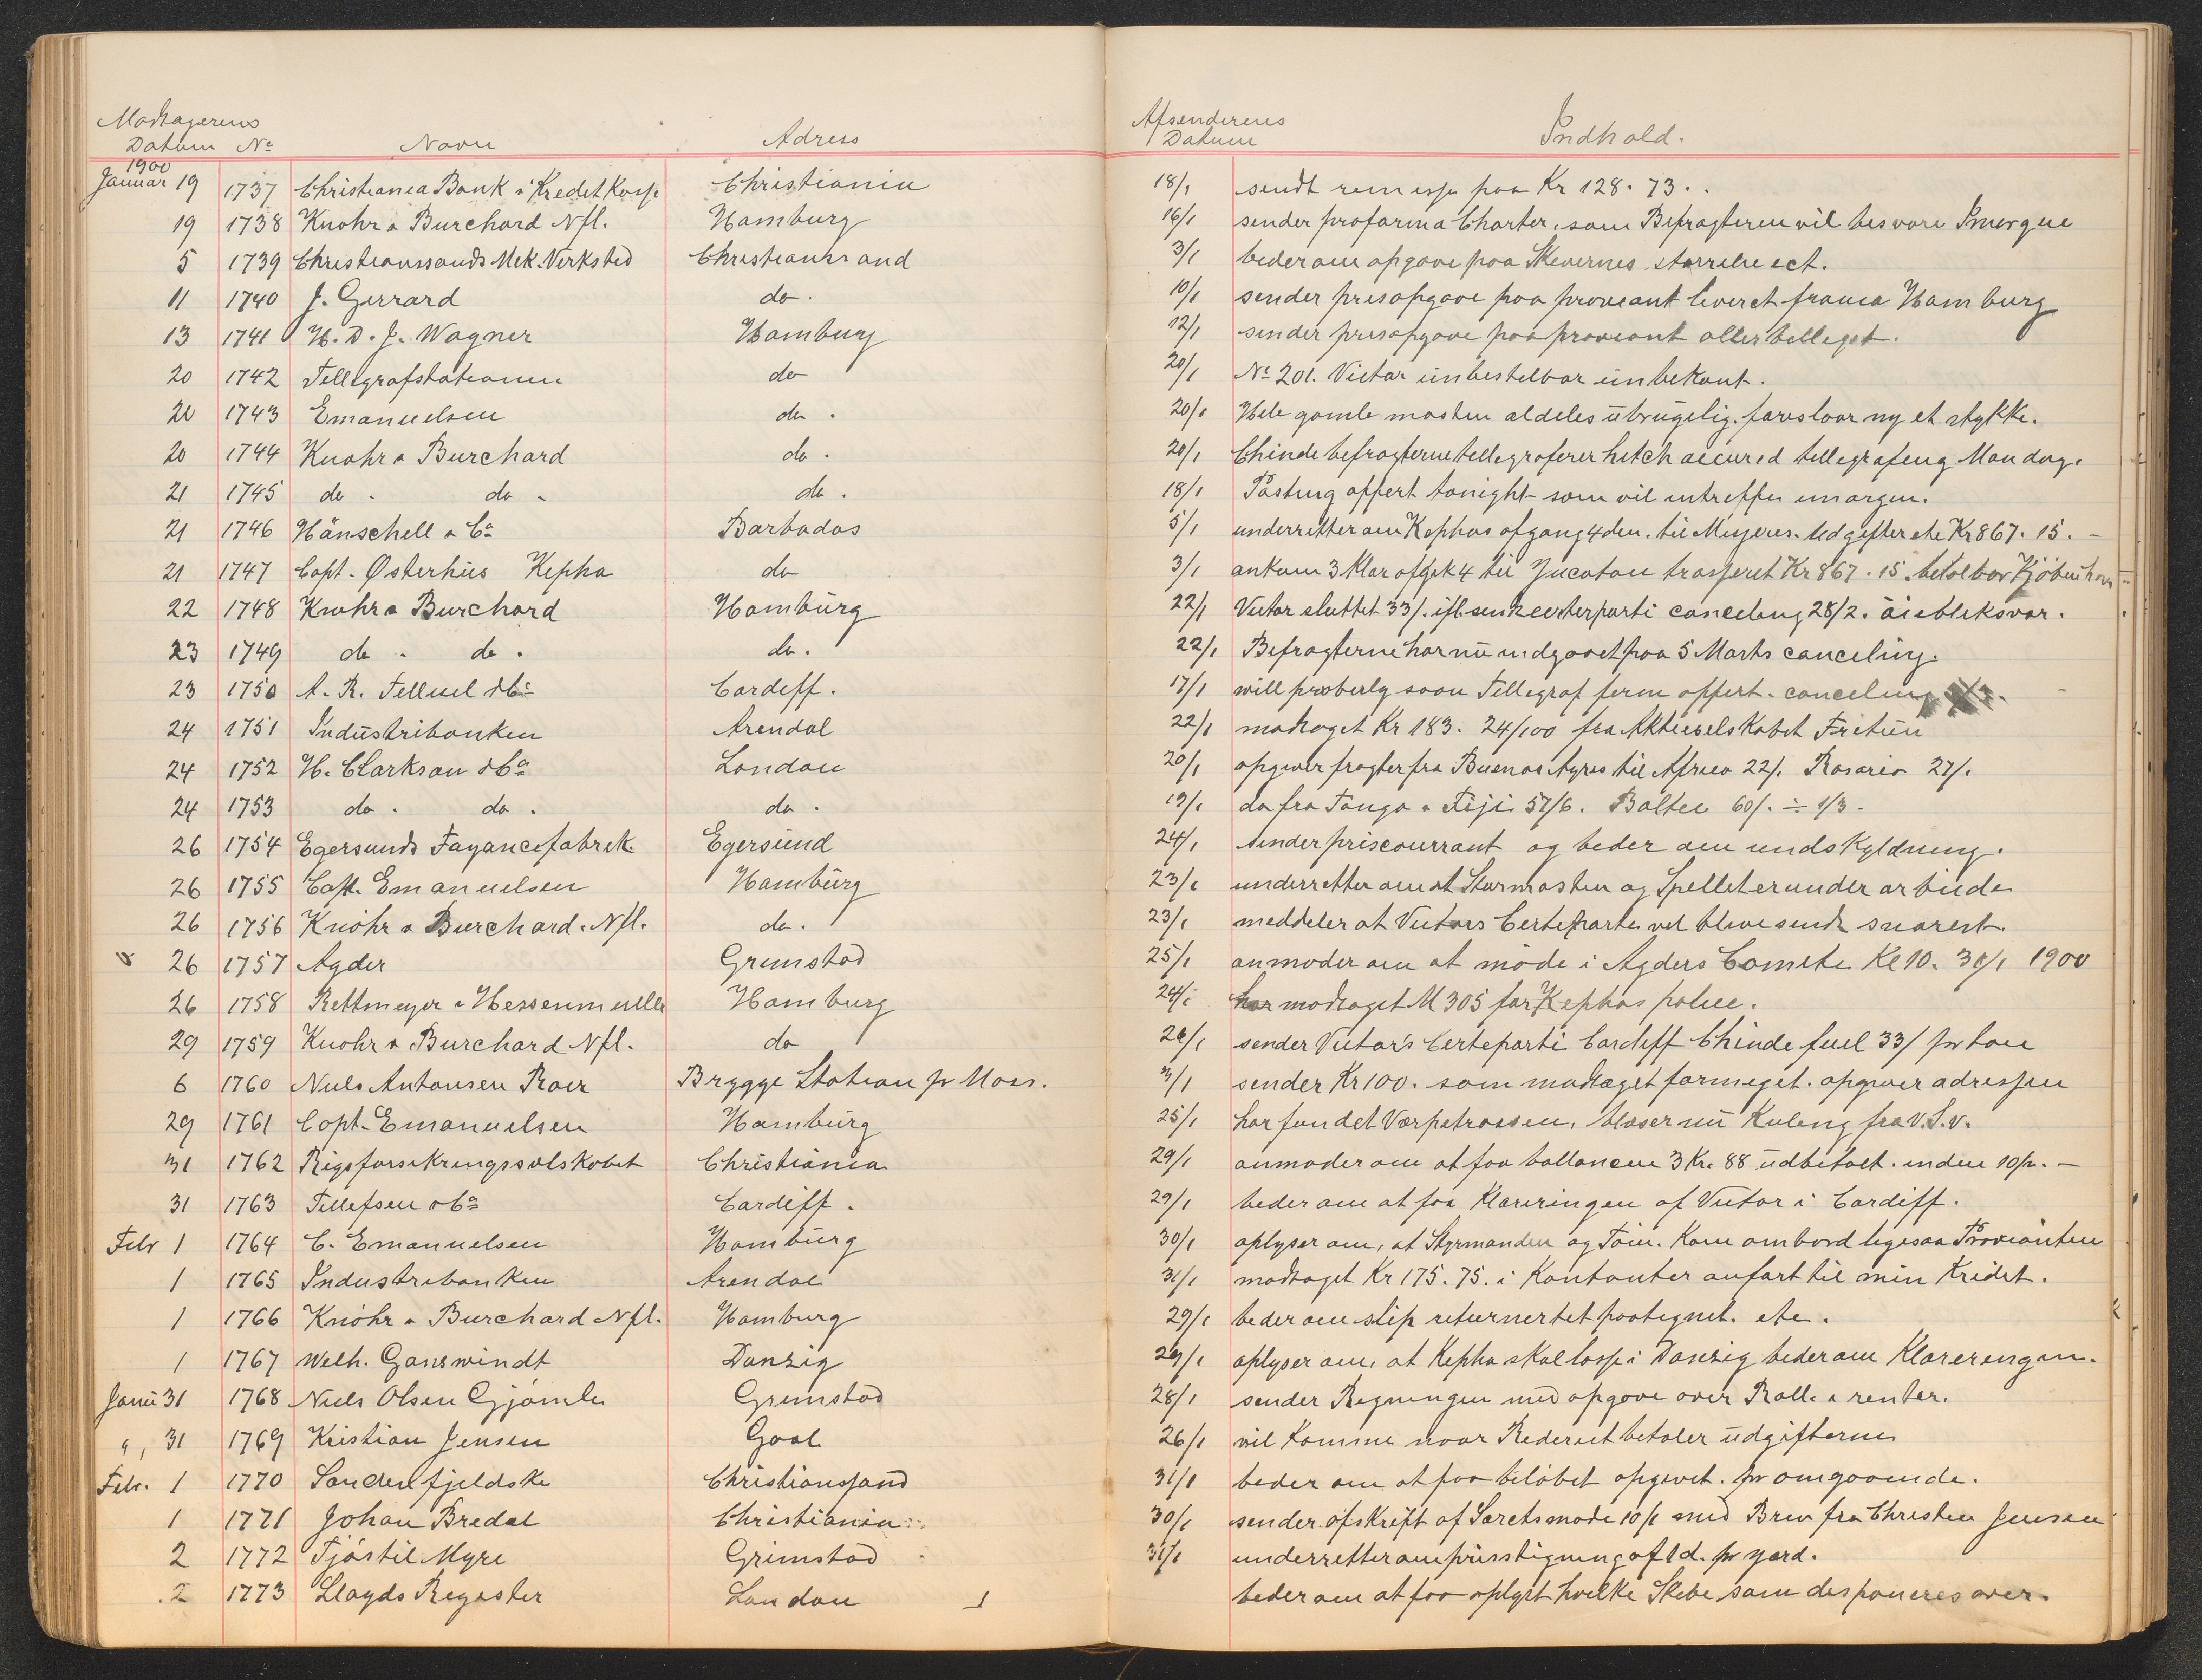 Modtagerens
Datum No Navn Adress
1900
Januar 19 1737 Christiania Bank & Kredet Kasse Christiania
19 1738 Knohr & Burchard Nfl. Hamburg
5 1739 Christianssands Mek. Verksted Christianssand
11 1740 J. Gerrard do.
13 1741 H. D. J. Wagner Hamburg
20 1742 Tellegrafstationen do
20 1743 Emanuelsen do.
20 1744 Knohr & Burchard do.
21 1745 do. do. do.
21 1746 Hänschell & Co Barbados
21 1747 Capt. Østerhus Kepha do
22 1748 Knohr & Burchard Hamburg
23 1749 do. do. do.
23 1750 A. R. Tellefsen & Co Cardeff.
24 1751 Industribanken Arendal
24 1752 H. Clarkson & Co London
24 1753 do. do. do.
26 1754 Egersunds Fayancefabrik Egersund
26 1755 Capt. Emanuelsen Hamburg
26 1756 Knöhr & Burchard. Nfl. do.
26 1757 Agder Grimstad
26 1758 Rettmeyer & Hessenmuller Hamburg
29 1759 Knohr & Burchard Nfl. do
6 1760 Niels Antonsen Roer Brygge Station pr Moss.
29 1761 Capt. Emanuelsen Hamburg
31 1762 Rigsforsikringsselskabet Christiania
31 1763 Tellefsen & Co Cardiff.
Febr 1 1764 C. Emanuelsen Hamburg
1 1765 Industribanken Arendal
1 1766 Knöhr & Burchard Nfl. Hamburg
1 1767 Welh. Ganswindt Danzig
Janu 31 1768 Niels Olsen Gjømle Grimstad
" 31 1769 Kristian Jensen Goal
Febr. 1 1770 Sondenfjeldske Christianssand
1 1771 Johan Bredal Christiania
2 1772 Tjöstil Myre Grimstad
2 1773 Lloyds Register London
Afsenderens
Datum Indhold.
18/1 sendt remesse paa Kr 128. 73..
16/1 sender profarma Charter, som Befragteren vil besvare Imorgen
3/1 beder om opgave paa Skevernes størrelse ect.
10/1 sender prisopgave paa proviant leveret franca Hamburg
12/1 sender prisopgave paa proviant allerbelligst.
20/1 No 201. Victor unbestelbar unbekant.
20/1 Hele gamle masten aldeles ubrugelig. foreslaar ny et stykke.
20/1 Chinde befragterne tellegraferer hitch accured tellegrafeng Mandag.
18/1 Tasting offert tonight som vil intreffe imorgen.
5/1 underretter om Kephas afgang 4den. til Udgifter etc Kr 867. 15. –
3/1 ankom 3 klar afgik 4 til Yucatan trasseret Kr 867. 15 betalbar Kjöbenhavn
22/1 Victor sluttet 33/. canceling 28/2. öiebliksvar.
22/1 Befragterne har nu indgaaet paa 5 Marts canceling.
17/1 will proberly soon Tellegraf ferm offert. canceling
22/1 modtaget Kr 183. 24/100 fra Aktieselskabet Fritun
20/1 opgiver fragter fra Buenos Ayres til Africa 22/. Rosario 27/.
19/1 do fra Tonga & Fiji 57/6. Baltic 60/. ÷ 1/3.
24/1 sender priscourrant og beder om undskyldning.
23/1 underretter om at Stormasten og Spellet er under arbeide
23/1 meddeler at Victors Certeparte vil blive sendt snarest.
25/1 anmoder om at möde i Agders Comite Kl 10. 30/1 1900
24/1 har modtaget M 305 for Kephas police.
26/1 sender Victor's Certeparti Cardiff Chinde fuel 33/ pr ton
3/1 sender Kr 100. som modtaget formeget. opgiver adressen
25/1 har fundet Varpetrossen, blaser nu Kuleng fra V.S.V.
29/1 anmoder om at faa ballancen 3 Kr. 88 udbetalt. inden 10/2. –
29/1 beder om at faa Klareringen af Victor i Cardiff.
30/1 oplyser om, at Styrmanden og Töm. Kom ombord ligesaa Provianten
31/1 modtaget Kr 175. 75. i Kontanter anfört til min Kridit.
29/1 beder om slip returnertet paategnet. etc.
29/1 oplyser om, at Kepha skal losse i Danzig beder om Klareringen.
28/1 sender Regningen med opgave over Rall. & renter.
26/1 vil komme naar Rederiet betaler udgifterne
31/1 beder om at faa belöbet opgivet. pr omgaaende.
30/1 sender afskrift af 10/1 med Brev fra Christen Jensen
31/1 underretter om prisstigning af 1 d. pr yard.
beder om at faa oplyst hvilke Skibe som desponeres over.